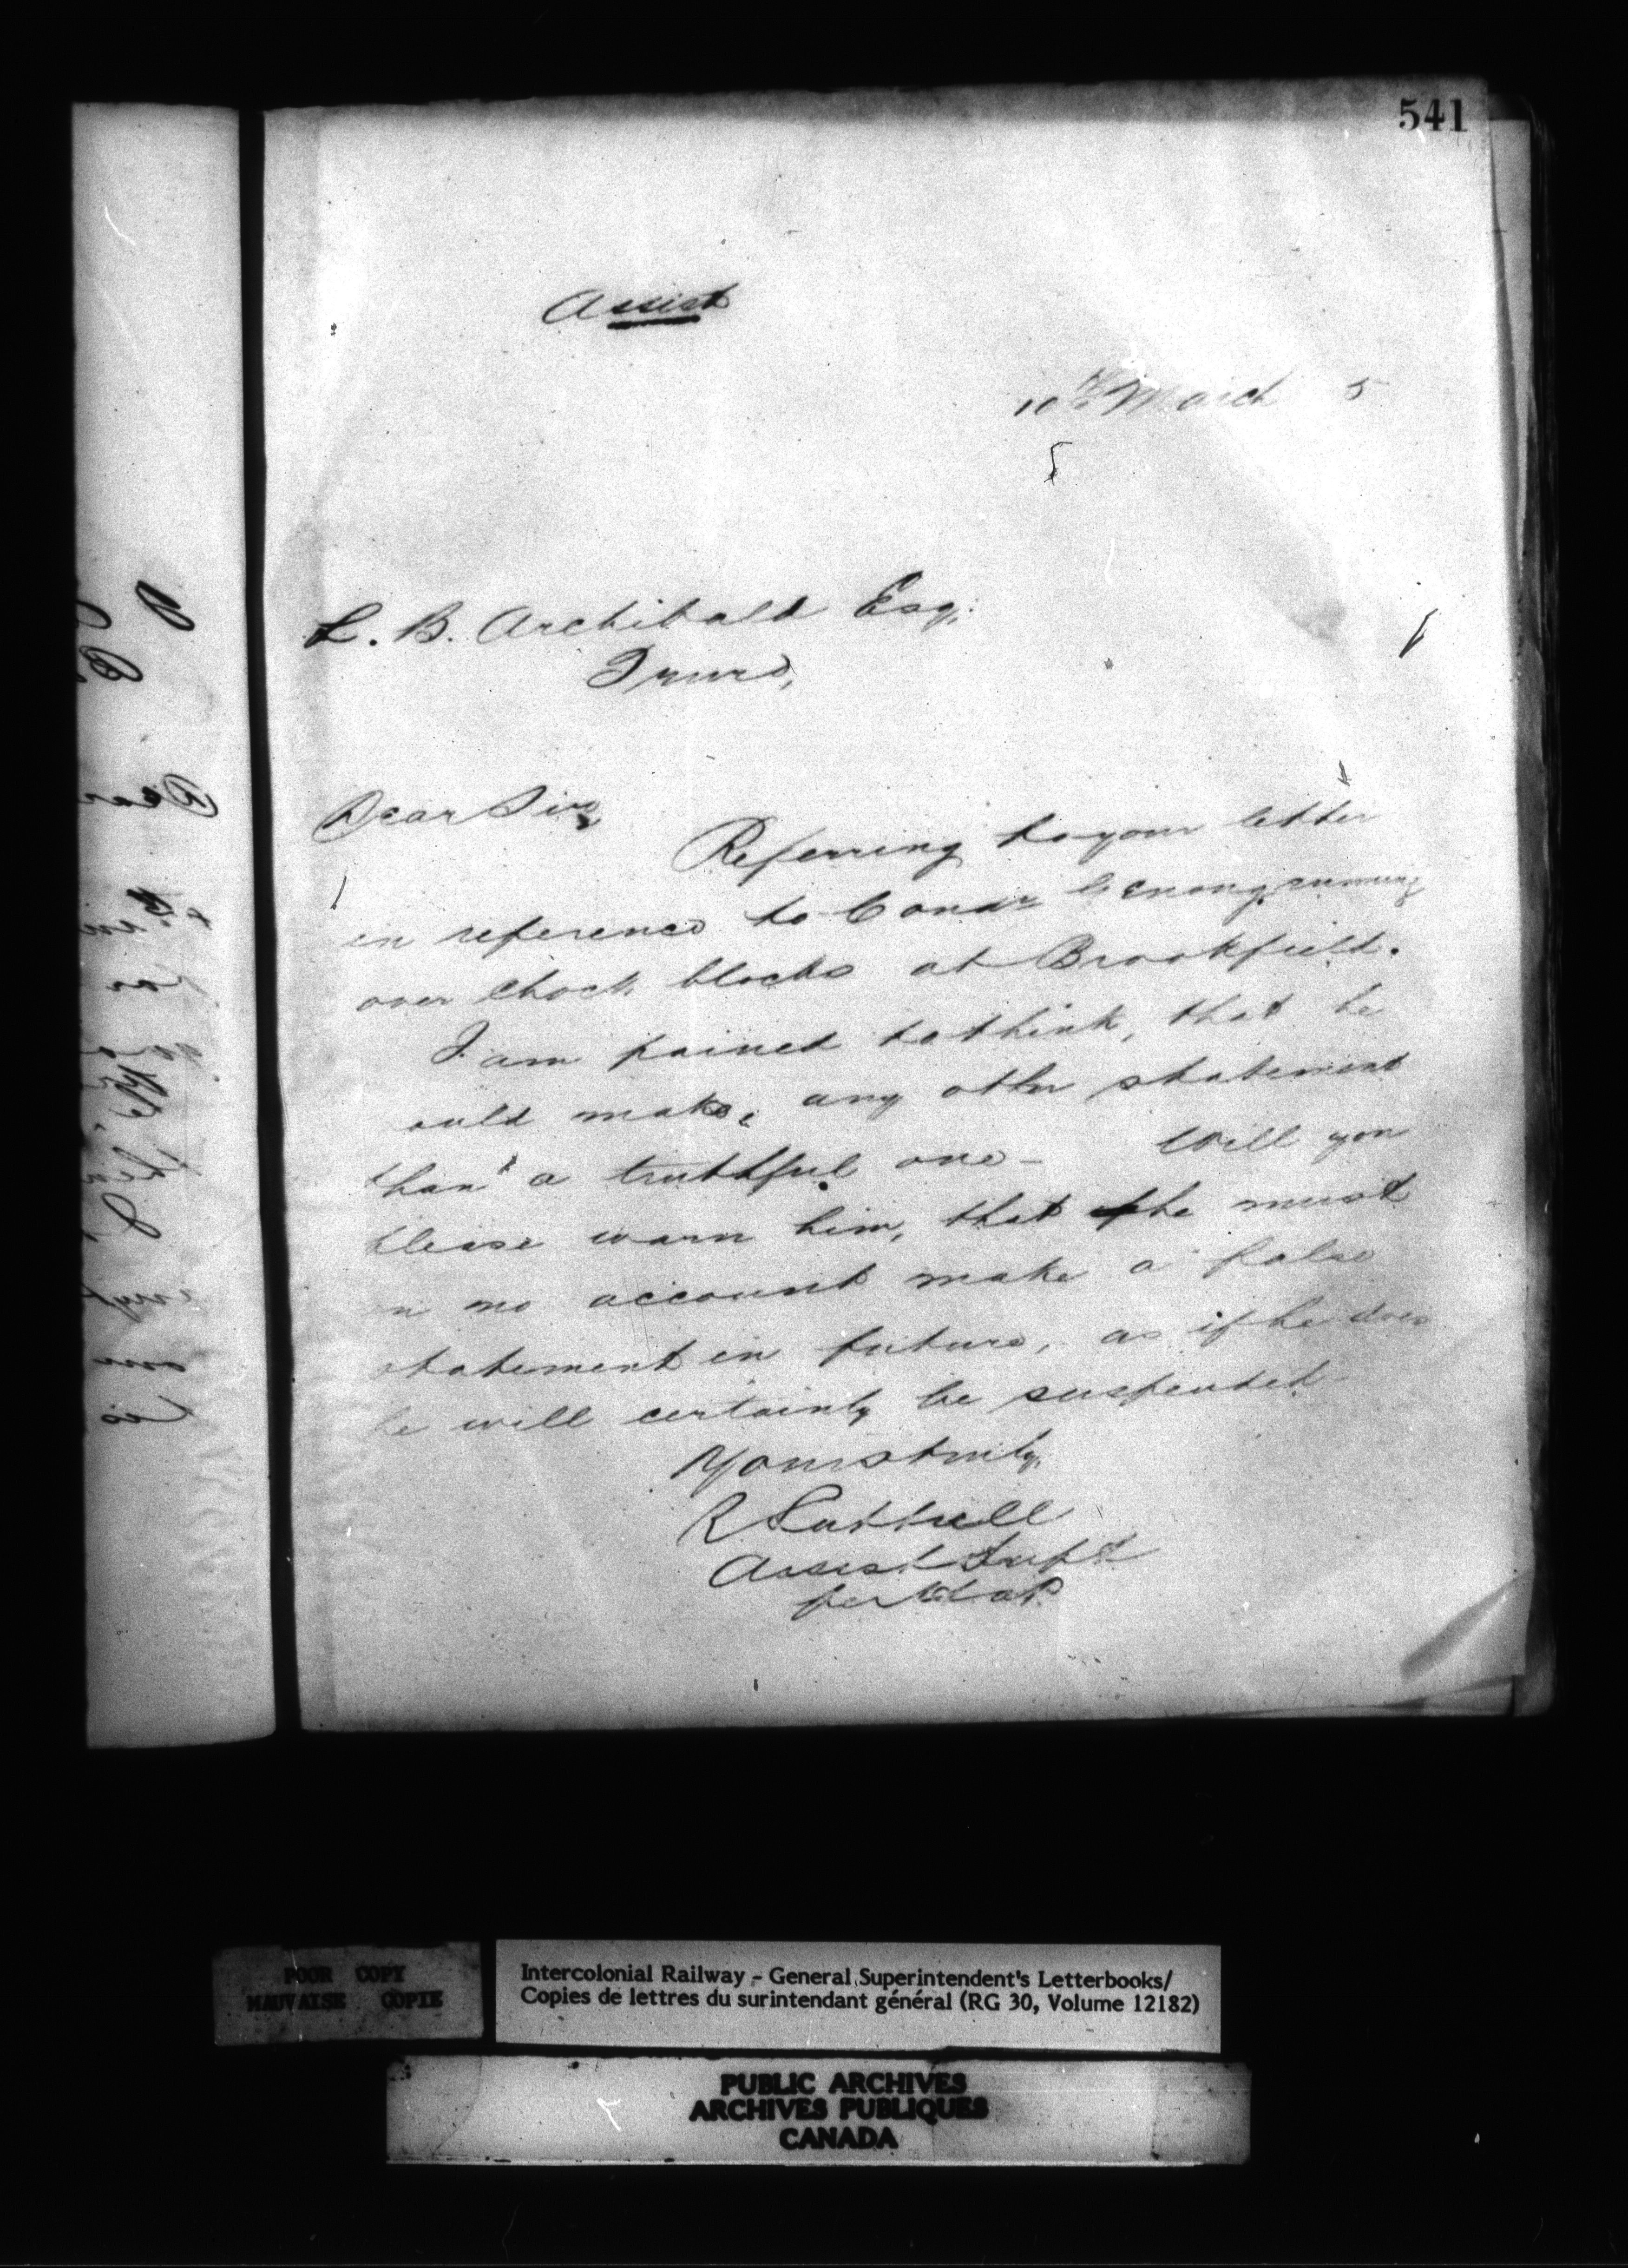 541
Assist
10th March 5
L. B. Archibald Esq.
Truro,
Dear Sir,
Referring to your letter
in reference to Condr running
over chock blocks at Brookfield.
I am pained to think, that he
ould make, any other statement
than a truthful one - Will you
please warn him, that he must
on no account make a false
statement in future, as if he does
he will certainly be suspended -
Yours truly,
Assist Supt
per
POOR COPY
MAUVAISE COPIE
Intercolonial Railway - General Superintendent's Letterbooks/
Copies de lettres du surintendant général (RG 30, Volume 12182)
PUBLIC ARCHIVES
ARCHIVES PUBLIQUES
CANADA